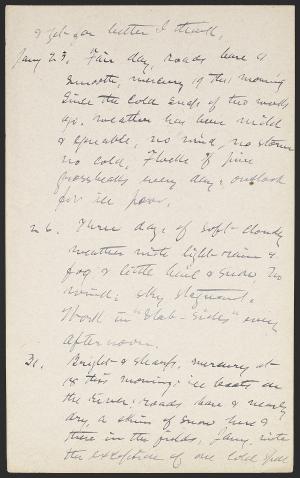 & get on better I think.
Jany 23. Fair day, roads bare &
smooth, mercury 15 this morning
Since the cold snap of two weeks
ago, weather has been mild
& equable, no wind, no storm
no cold. Flocks of pine
grosbeaks every day; outlook
for ice poor.
26. Three days of soft cloudy
weather with light rains &
fog & little hail & snow. No
wind; sky stagnant.
Work in "Slab-sides" every
afternoon.
31. Bright & sharp, mercury at
18 this morning; ice boats on
the river; roads bare & nearly
dry, a skim of snow here &
there in the fields, Jany, with
the exception of one cold spell